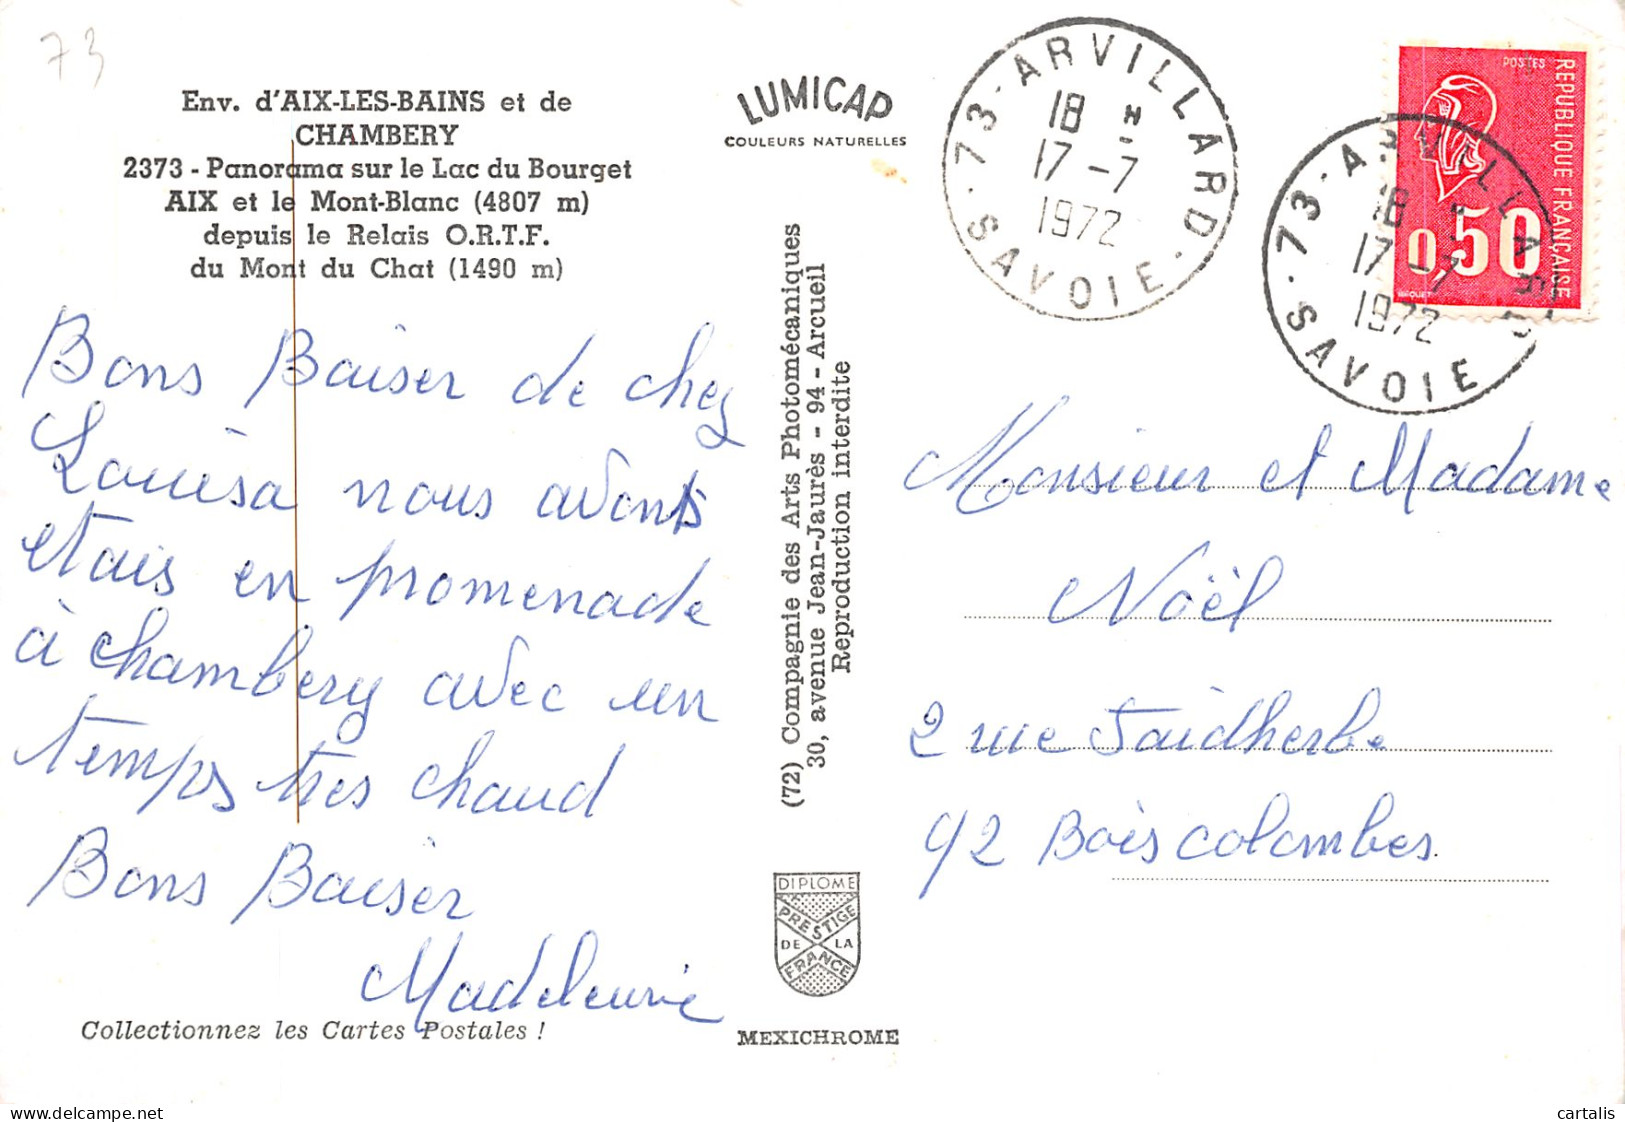 73
Env. d'AIX-LES-BAINS et de
CHAMBERY
2373 - Panorama sur le Lac du Bourget
AIX et le Mont-Blanc (4807 m)
depuis le Relais O.R.T.F.
du Mont du Chat (1490 m)
Bons Baiser de chez
Louisa nous avons
etais en promenade
à chambery avec un
temps tres chaud
Bons Baiser
Madeleine
Collectionnez les Cartes Postales !
LUMICAP
COULEURS NATURELLES
(72) Compagnie des Arts Photomécaniques
30, avenue Jean-Jaurès - 94 - Arcueil
Reproduction interdite
DIPLOME
PRESTIGE
DE LA
FRANCE
MEXICHROME
73 - ARVILLARD
18 H
17 - 7
1972
SAVOIE
POSTES
REPUBLIQUE FRANÇAISE
0,50
BEQUET
73 - ARVILLARD
18
17 - 7
1972
SAVOIE
Monsieur et Madame
Noël
2 rue Faidherbe
92 Bois colombes.
cartalis